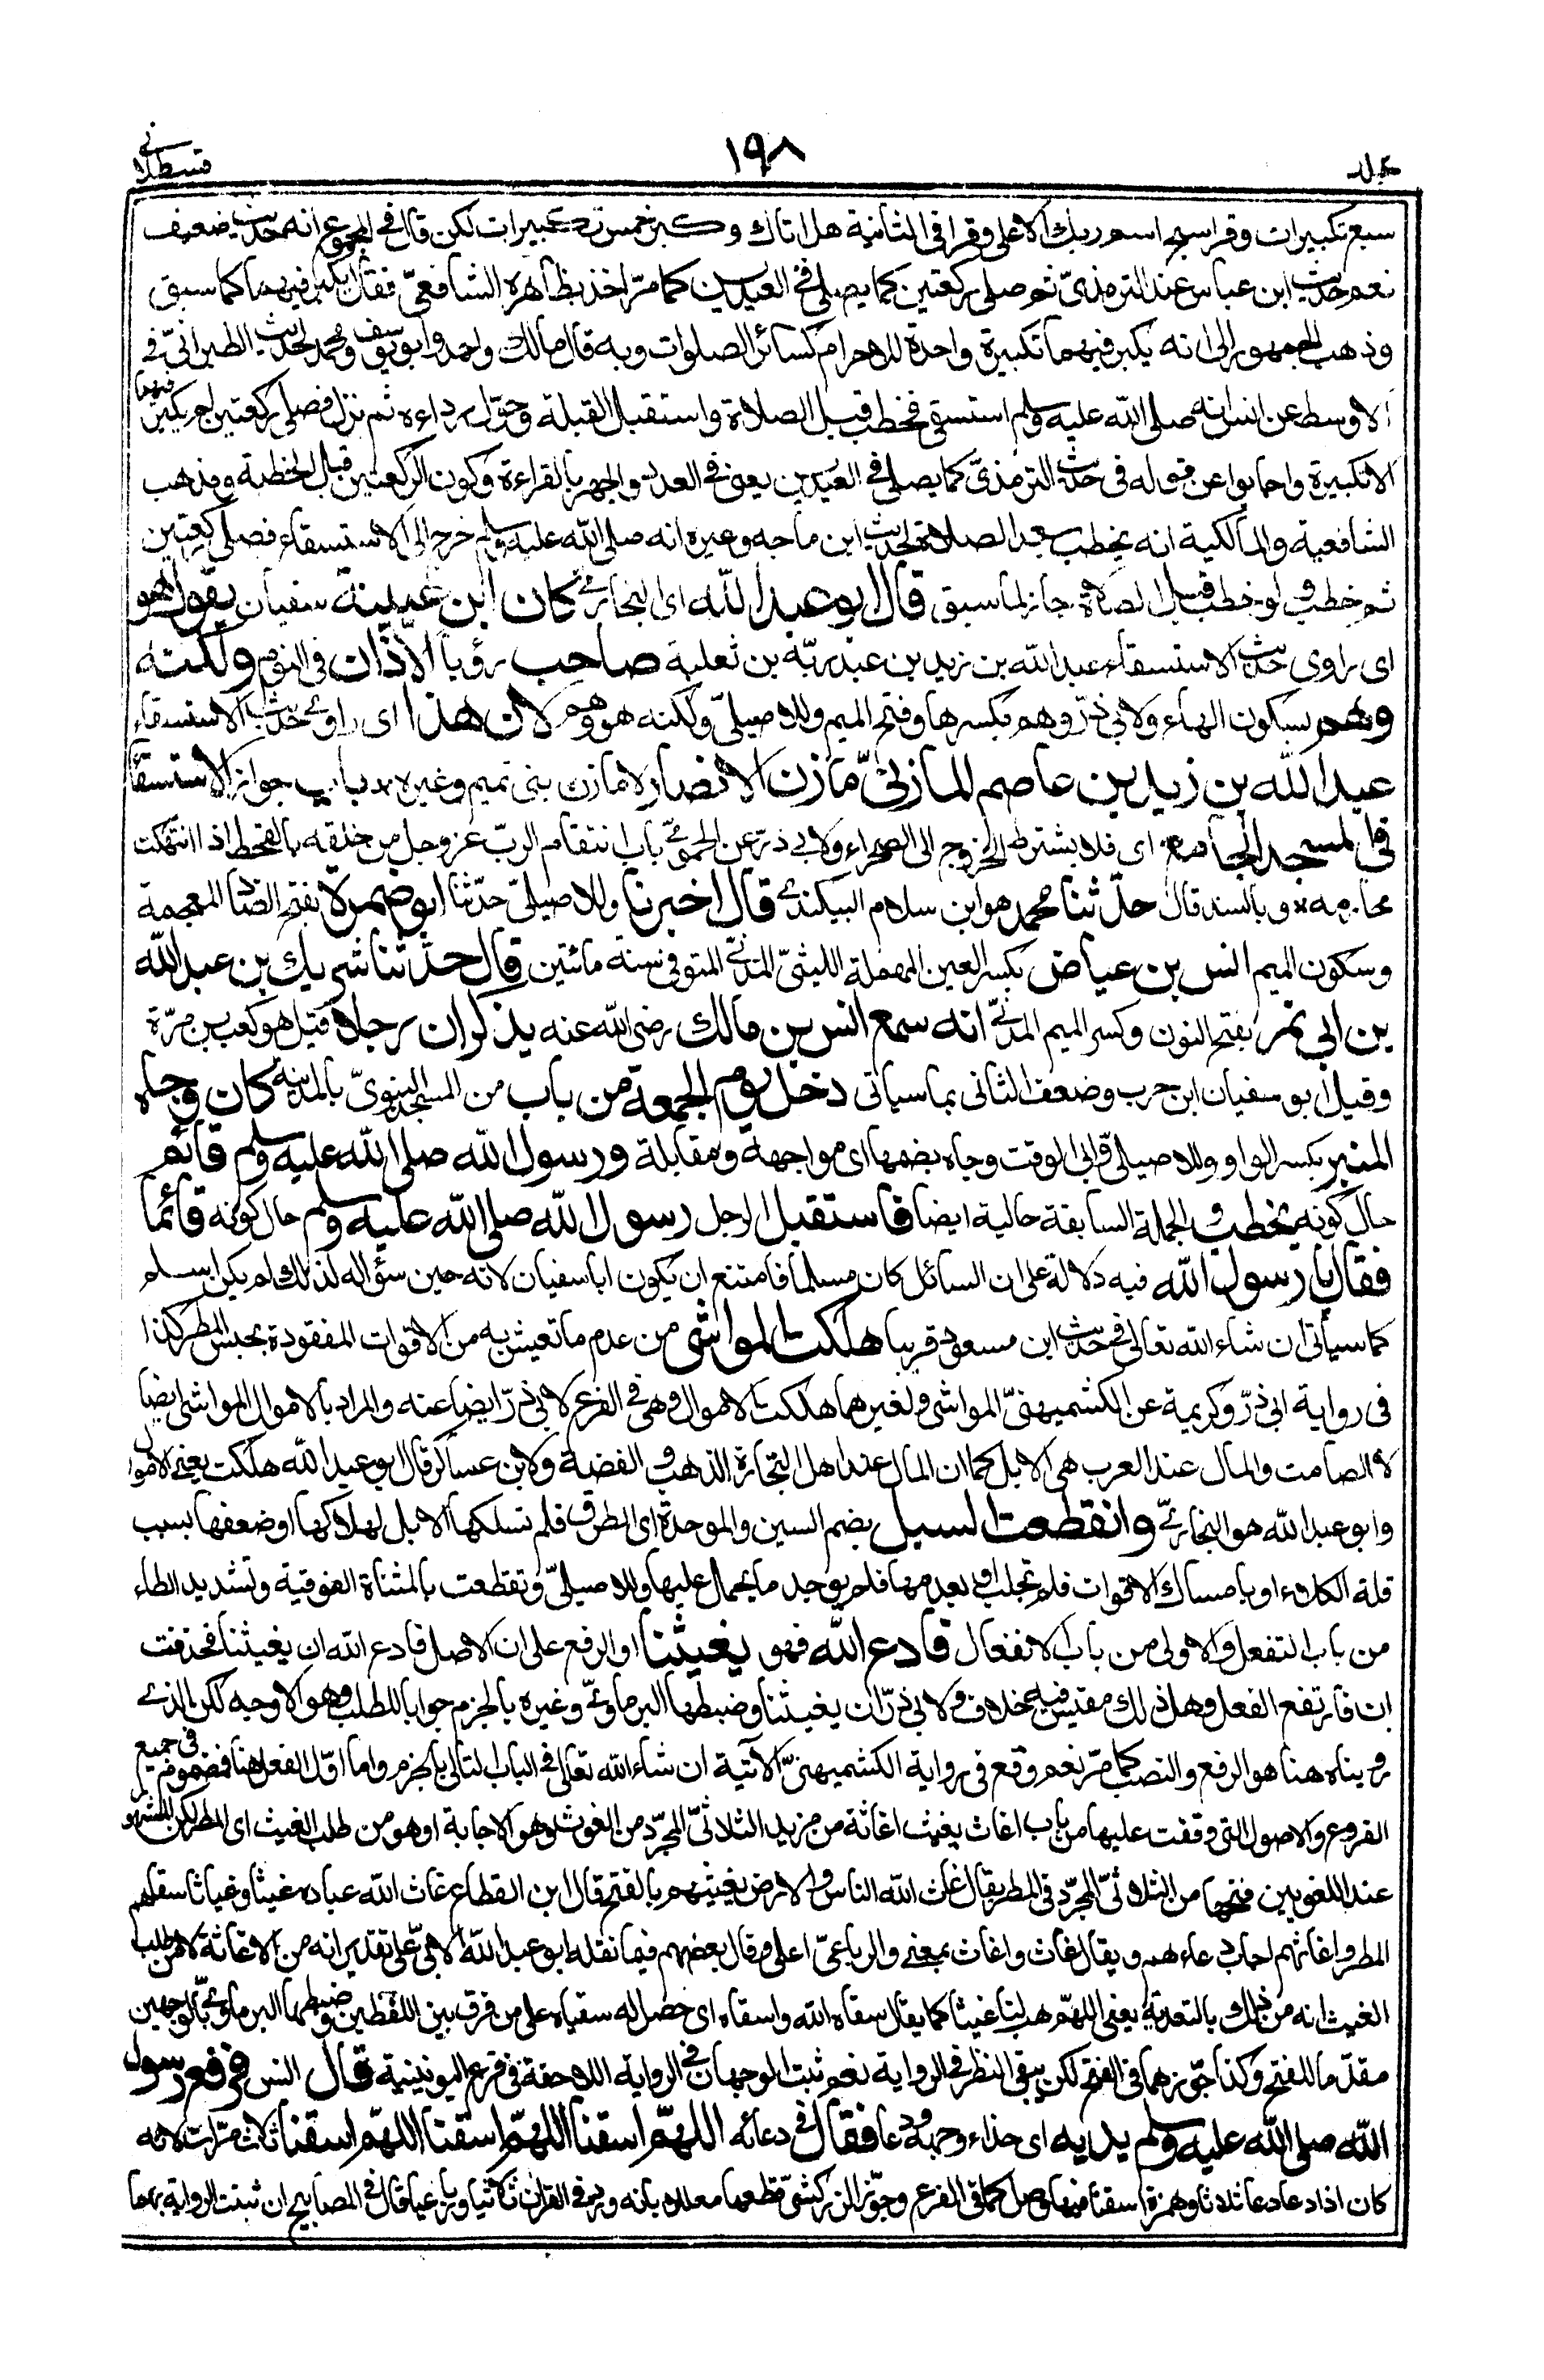 جلد
١٩٨
قسطلانى
سبع تكبيرات وقرا سبح اسم ربك الاعلى وقرا فى الثانية هل اتاك وكبر خمس تكبيرات لكن قال فى المجموع انه حديث ضعيف
نعم حديث ابن عباس عند الترمذىّ ثم صلى ركعتين كما يصلى فى العيدين كما مرّ اخذ بظاهره الشافعىّ فقال يكبر فيهما كما سبق
وذهب الجمهور الى انه يكبر فيهما تكبيرة واحدة للاحرام كسائر الصلوات وبه قال مالك واحمد وابو يوسف ومحمد لحديث الطبرانىّ فى
الاوسط عن انس انه صلى الله عليه وسلم استسقى فخطب قبل الصلاة واستقبل القبلة وحوّل رداءه ثم نزل فصلى ركعتين لم يكبر فيهما
الا تكبيرة واجابوا عن قوله فى حديث الترمذىّ كما يصلى فى العيدين يعنى فى العدد والجهر بالقراءة وكون الركعتين قبل الخطبة ومذهب
الشافعية والمالكية انه يخطب بعد الصلاة لحديث ابن ماجه وغيره انه صلى الله عليه وسلم خرج الى الاستسقاء فصلى ركعتين
ثم خطب ولو خطب قبل الصلاة جاز لما سبق قال ابو عبد الله اى البخارىّ كان ابن عيينة سفيان يقول هو
اى راوى حديث الاستسقاء عبد الله بن زيد بن عبد ربّه بن ثعلبة صاحب رؤيا الاذان فى النوم ولكنه
وهم بسكون الهاء ولابى ذرّ وهم بكسرها وفتح الميم وللاصيلىّ ولكنه هو وهم لان هذا اى راوى حديث الاستسقاء
عبد الله بن زيد بن عاصم المازنىّ مازن الانصار لا مازن بنى تميم وغيره * باب جواز الاستسقاء
فى المسجد الجامع اى فلا يشترط الخروج الى الصحراء ولابى ذرّ عن الحموىّ باب انتقام الربّ عز وجل من خلقه بالقحط اذا انتهكت
محارمه * وبالسند قال حدّثنا محمد هو ابن سلام البيكندىّ قال اخبرنا وللاصيلىّ حدّثنا ابو ضمرة بفتح الضاد المعجمة
وسكون الميم انس بن عياض بكسر العين المهملة الليثىّ المدنىّ المتوفى سنة مائتين قال حدّثنا شريك بن عبد الله
بن ابى نمر بفتح النون وكسر الميم المدنىّ انه سمع انس بن مالك رضى الله عنه يذكر ان رجلا قيل هو كعب بن مرّة
وقيل ابو سفيان ابن حرب وضعف الثانى بما سياتى دخل يوم الجمعة من باب من المسجد النبوىّ بالمدينة كان وجاه
المنبر بكسر الواو وللاصيلىّ وابى الوقت وجاه بضمها اى مواجهة ومقابلة ورسول الله صلى الله عليه وسلم قائم
حال كونه يخطب والجملة السابقة حالية ايضا فاستقبل الرجل رسول الله صلى الله عليه وسلم حال كونه قائما
فقال يا رسول الله فيه دلالة على ان السائل كان مسلما فامتنع ان يكون ابا سفيان لانه حين سؤاله لذلك لم يكن اسلم
كما سياتى ان شاء الله تعالى فى حديث ابن مسعود قريبا هلكت المواشى من عدم ما تعيش به من الاقوات المفقودة بحبس المطر كذا
فى رواية ابى ذرّ وكريمة عن الكشميهنىّ المواشى ولغيرهما هلكت الاموال وهى فى الفرع لابى ذرّ ايضا عنه والمراد بالاموال المواشى ايضا
لا الصامت والمال عند العرب هى الابل كما ان المال عند اهل التجارة الذهب والفضة ولابن عساكر قال ابو عبد الله هلكت يعنى الاموال
وابو عبد الله هو البخارىّ وانقطعت السبل بضم السين والموحدة اى الطرق فلم تسلكها الابل لهلاكها او ضعفها بسبب
قلة الكلاء او بامساك الاقوات فلم تجلب او بعدمها فلم يوجد ما يحمل عليها وللاصيلىّ وتقطعت بالمثناة الفوقية وتشديد الطاء
من باب التفعل والاولى من باب الانفعال فادع الله فهو يغيثنا او الرفع على ان الاصل فادع الله ان يغيثنا فحذفت
ان فارتفع الفعل وهل ذلك مقيس فيه خلاف ولابى ذرّ ان يغيثنا وضبطها البرماوىّ وغيره بالجزم جوابا للطلب وهو الاوجه لكن الذى
رويناه هنا هو الرفع والنصب كما مرّ نعم وقع فى رواية الكشميهنىّ الآتية ان شاء الله تعالى فى الباب التالى بالجزم واما اوّل الفعل هنا فمضموم فى جميع
الفروع والاصول التى وقفت عليها من باب اغاث يغيث اغاثة من مزيد الثلاثىّ المجرّد من الغوث وهو الاجابة او هو من طلب الغيث اى المطر لكن المشهور
عند اللغويين فتحها من الثلاثىّ المجرّد فى المطر يقال غاث الله الناس والارض يغيثهم بالفتح قال ابن القطاع غاث الله عباده غيثا وغياثا سقاهم
المطر واغاثهم اجاب دعاءهم ويقال غاث واغاث بمعنى والرباعىّ اعلى وقال بعضهم فيما نقله ابو عبد الله الابىّ على تقدير انه من الاغاثة لا من طلب
الغيث انه من ذلك بالتعدية يعنى اللهمّ هب لنا غيثا كما يقال سقاه الله واسقاه اى حصل له سقياه على من فرق بين اللفظين وضبطها البرماوىّ بالوجهين
مقدّما للفتح وكذا جوّزهما فى الفتح لكن يبقى النظر فى الرواية نعم ثبت الوجهان فى الرواية اللاحقة فى فرع اليونينية قال انس فرفع رسول
الله صلى الله عليه وسلم يديه اى حذاء وجهه ودعا فقال فى دعائه اللهمّ اسقنا اللهمّ اسقنا اللهمّ اسقنا ثلاث مرّات لانه
كان اذا دعا دعا ثلاثا وهمزة اسقنا فيها وصل كما فى الفرع وجوّز الزركشىّ قطعها معللا بانه ورد فى القران ثلاثيا ورباعيا قال فى المصابيح ان ثبتت الرواية بهما